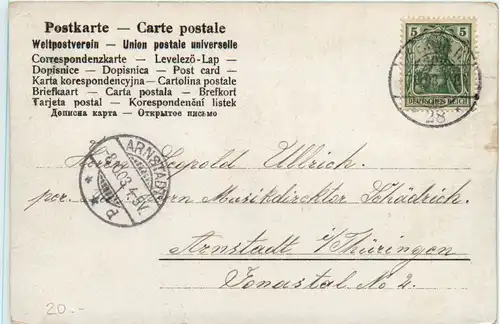 Postkarte — Carte postale
Weltpostverein — Union postale universelle
Correspondenzkarte — Levelező-Lap —
Dopisnice — Dopisnica — Post card —
Karta korespondencyjna — Cartolina postale
Briefkaart — Carta postala — Brefkort
Tarjeta postal — Korespondenční listek
Дописна карта — Открытое письмо
5 5
DEUTSCHES REICH
28
ARNSTADT
Herrn Leopold Ullrich.
per Herrn Musikdirektor Schädrich.
Arnstadt i/Thüringen
Jonastal No 2.
20.-